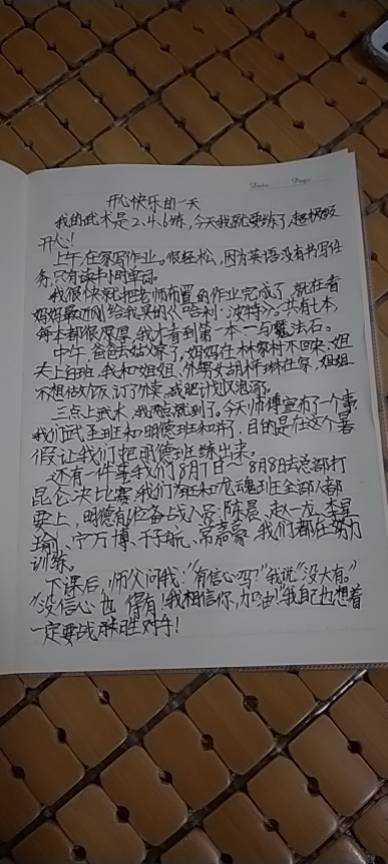 Date    Page
开心快乐的一天
我的武术是2.4.6练,今天我就要练了,超极极
开心!
上午,在家写作业。很轻松,因为英语没有书写任
务,只有读半小时单词。
我很快就把老师布置的作业完成了,就在看
妈妈最刚给我买的《哈利·波特》。共有七本,
每本都很厚厚,我才看到第一本一与魔法石。
中午,爸爸去姑父家了,妈妈在林家村不回来,姐
夫上白班,我和姐姐、外甥女胡梓琳在家,姐姐
不想做饭,订了外卖,减肥计划又泡汤
三点上武术,我两点就到了。今天师傅宣布了一个事
我们武圣班和明德班和并,目的是在这个暑
假让我们把明德班练出来。
还有一件事我们8月7日~8月8日去总部打
昆仑决比赛,我们班和龙魂班全部人都
要上,明德有些备战人员:陈晨、赵一龙、李昱
瑜、宁万博、我们都在努力
训练。
下课后,师父问我:“有信心吗?”我说“没大有。”
“没信心也得有!我相信你,加油!”我自己也想着
一定要战胜对手!